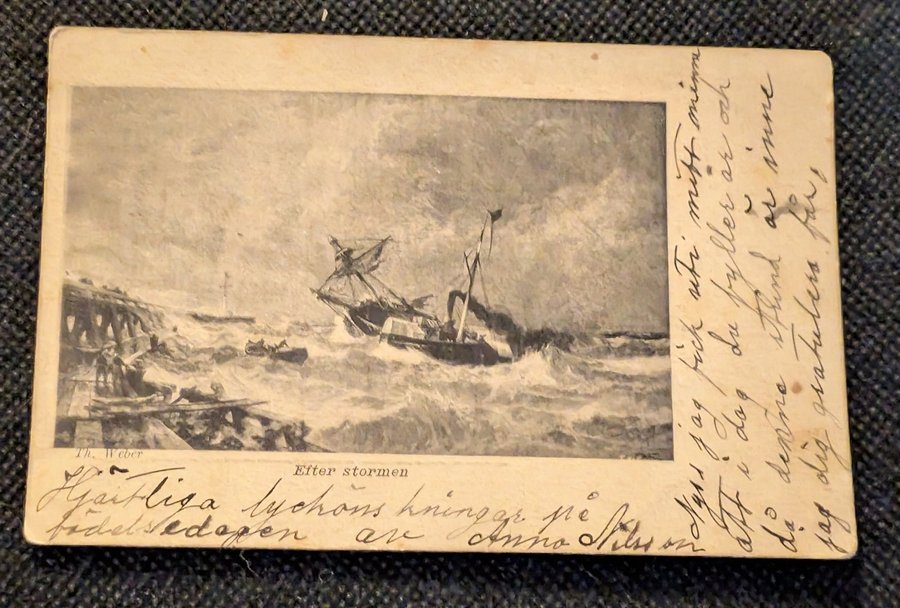 Th. Weber
Efter stormen
Hjärtliga lyckönskningar på
födelsedagen av Anna Nilsson
Nyss jag fick uti mitt minne
att i dag du fyller år och
då denna stund är inne
jag dig gratulera får,